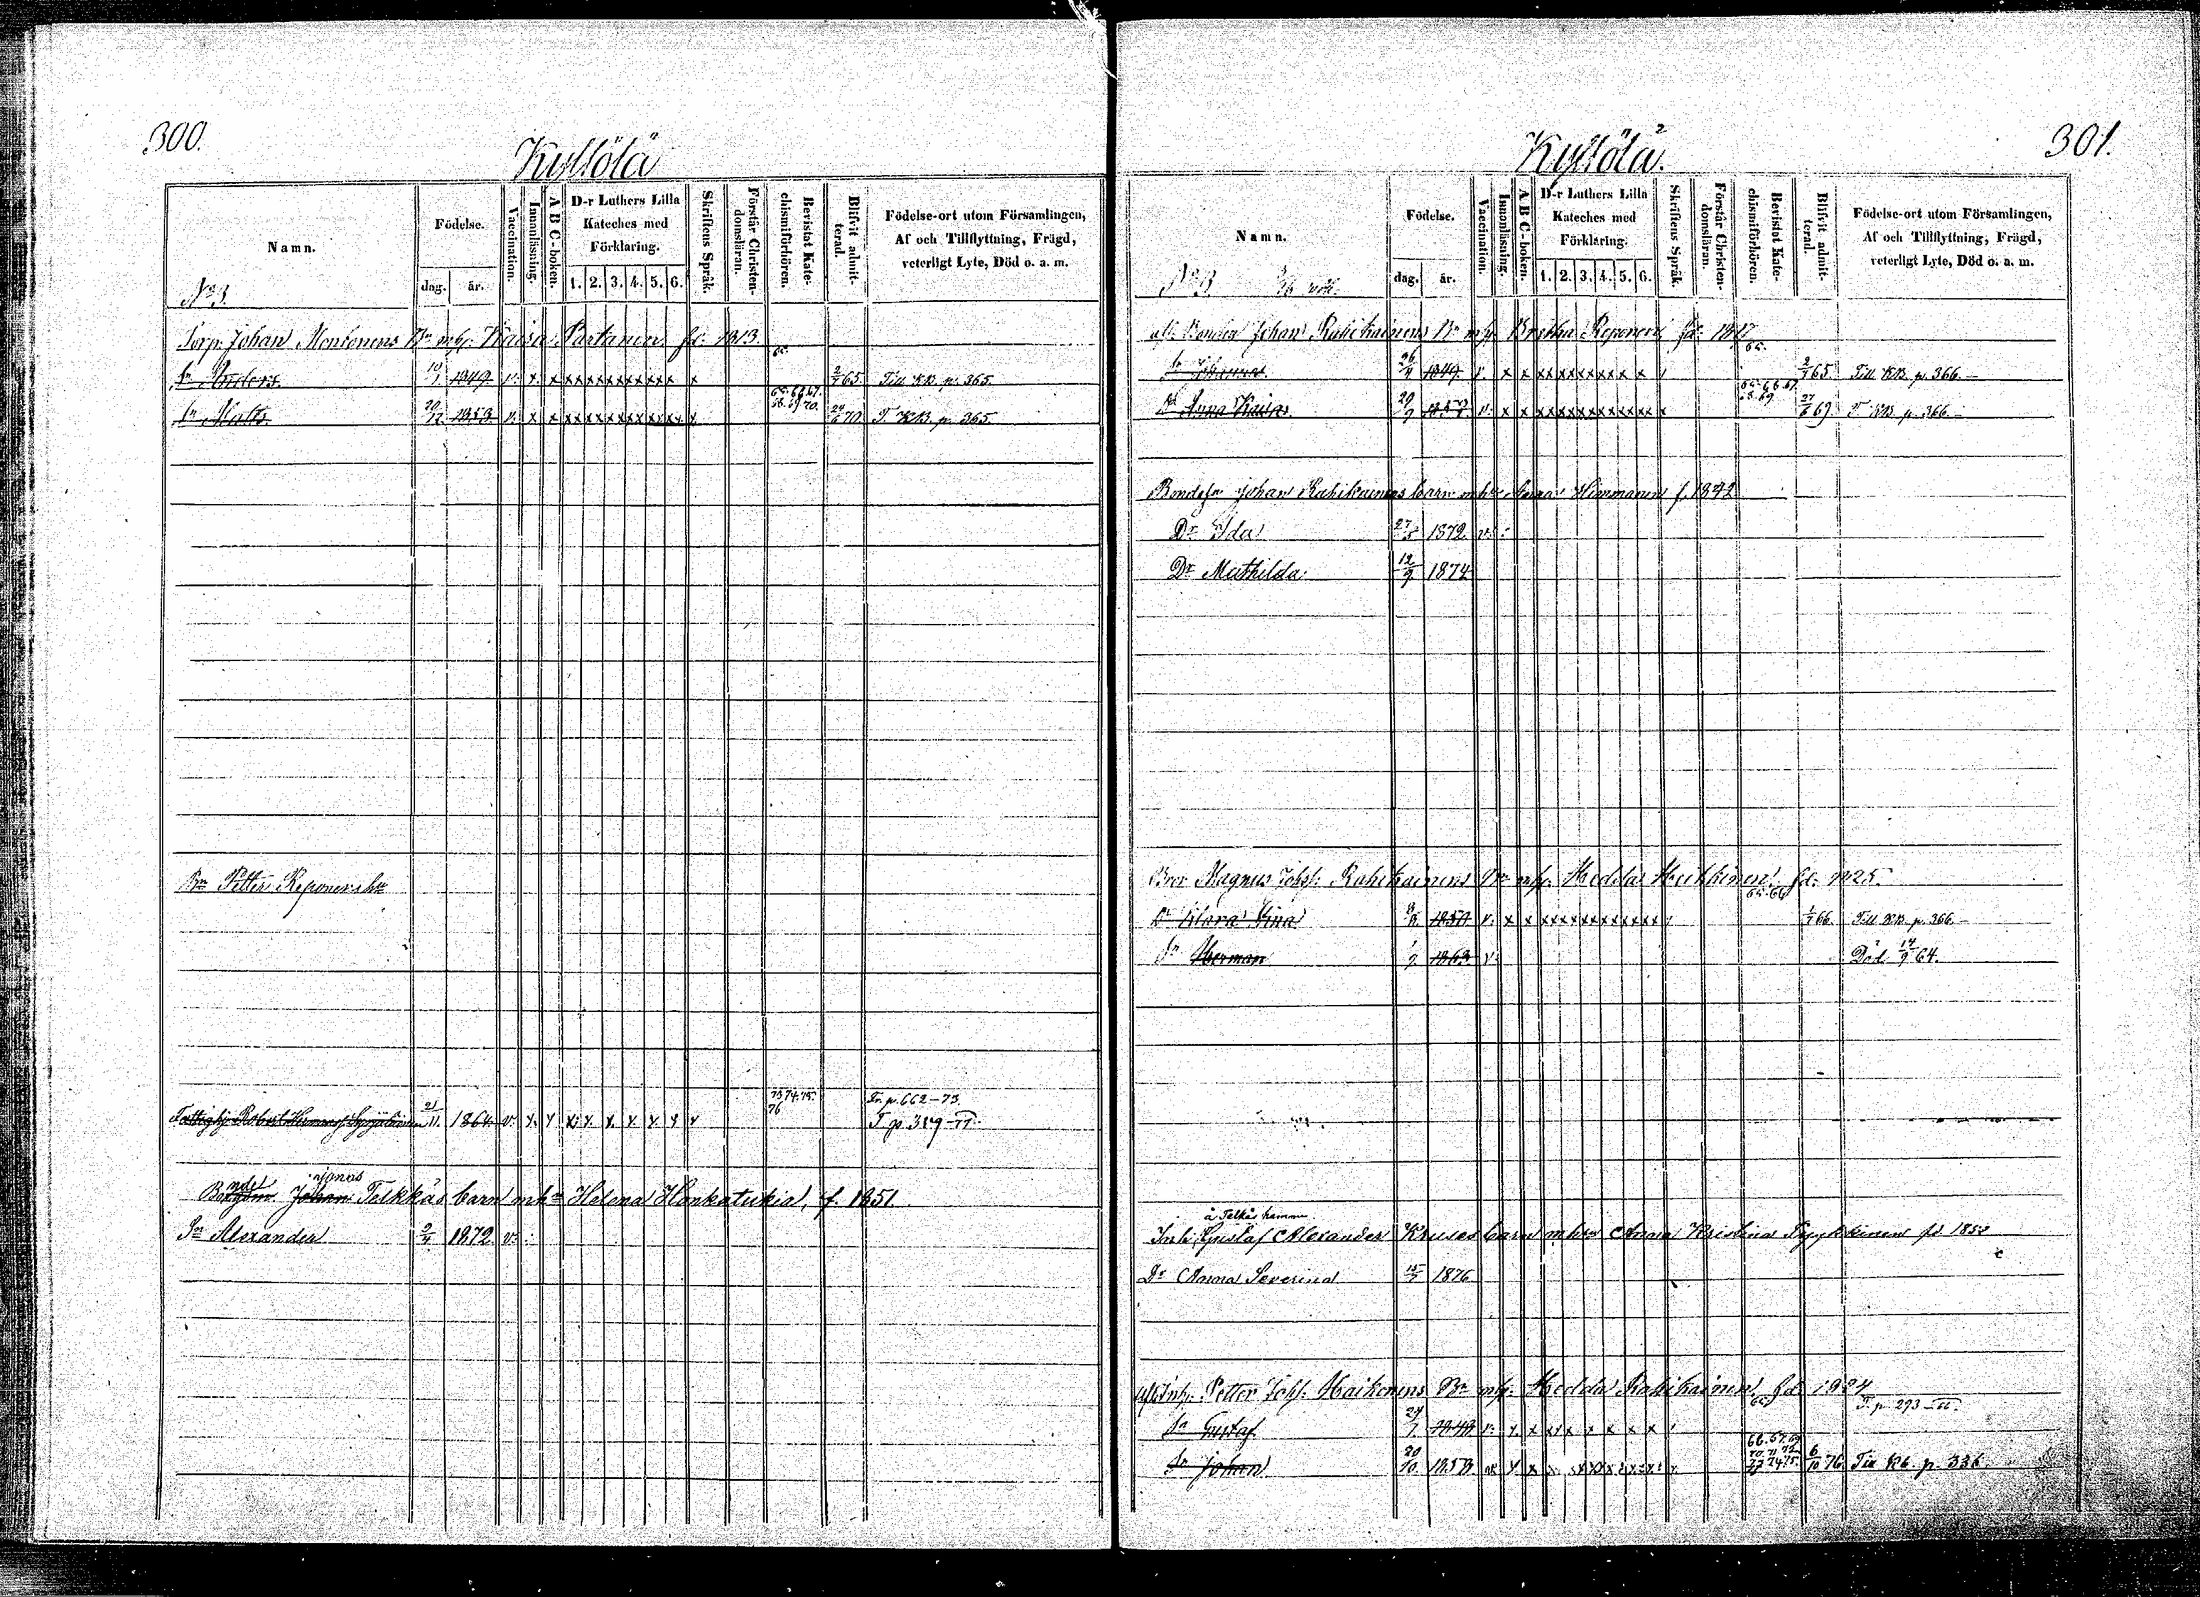 300.
Kyllölä
Namn.
Födelse.
dag.
år.
Vaccination.
Innanläsning.
A B C-boken.
D-r Luthers Lilla Kateches med Förklaring.
1. 2. 3. 4. 5. 6.
Skriftens Språk.
Förstår Christendomsläran.
Bevistat Katechismiförhören.
Blifvit admitterad.
Födelse-ort utom Församlingen, Af och Tillflyttning, Frägd, veterligt Lyte, Död o. a. m.
No 3.
Torp. Johan Montonens Bn mh: Kaisa Partanen fd: 1813.
65.
Sn Anders 10/1 1849. v. x x x x x x x x x x x x 2/7 65. Till KB. p. 365.
65. 66. 67. 68. 69. 70.
Sn Matts 20/12 1853 v. x x x x x x x x x x x x 24/6 70. T. KB. p. 365.
Bn Petter Reponens
73 74. 75. 76
Fr. p. 662-73.
Fattighj. Robert Herman 21/11 1864 v. x x x x x x x x x T. p. 319-77.
nde Jonas
Johan Telkkäs barn mh Helena Honkatukia, f. 1851.
Sn Alexander 2/4 1872 v.
301.
Kyllölä.
Namn.
Födelse.
dag.
år.
Vaccination.
Innanläsning.
A B C-boken.
D-r Luthers Lilla Kateches med Förklaring.
1. 2. 3. 4. 5. 6.
Skriftens Språk.
Förstår Christendomsläran.
Bevistat Katechismiförhören.
Blifvit admitterad.
Födelse-ort utom Församlingen, Af och Tillflyttning, Frägd, veterligt Lyte, Död o. a. m.
No 3.
afl. Bonden Johan Rahikainens Bn mh: Britha Reponen, fd: 1817
65.
Sn Johannes 26/4 1849. v. x x x x x x x x x x 2/7 65. Till KB. p. 366.-
65. 66. 67. 68. 69.
Dr Anna Kaisa 29/9 v. x x x x x x x x x x x 27/6 69. T KB. p. 366.-
Bondesn Johan Rahikainens barn mh: Anna Himmanen f. 1842
Dr Ida 27/5 1872 v.
Dr Mathilda 12/9 1874
Bror Magnus Johs: Rahikainens Bn mh: Hedda Heikkinen, fd: 1825.
65. 66
Dr Klara Stina 1850 v. x x x x x x x x x x x x 1/7 66. Till KB. p. 366.-
Sn Herman 1/9 1863 v. Död 14/9 64.
å Telkäs hemm
Inh. Gustaf Alexander Kruses barn mh Anna Kristina Tyykkinen fd 1852
Dr Anna Severina 15/3 1876
afl. Inh. Petter Johs: Haikonens Bn mh: Hedda Rahikainen, fd: 1824
65
T. p. 293-66.
Sn Gustaf 29/7 1849 v. x x x x x x x x x
66. 67. 69 70 71 72 73 74 75.
Sn Johan 20/10 1853 x x x x x x x x 6/10 76 Till Kb. p. 336.